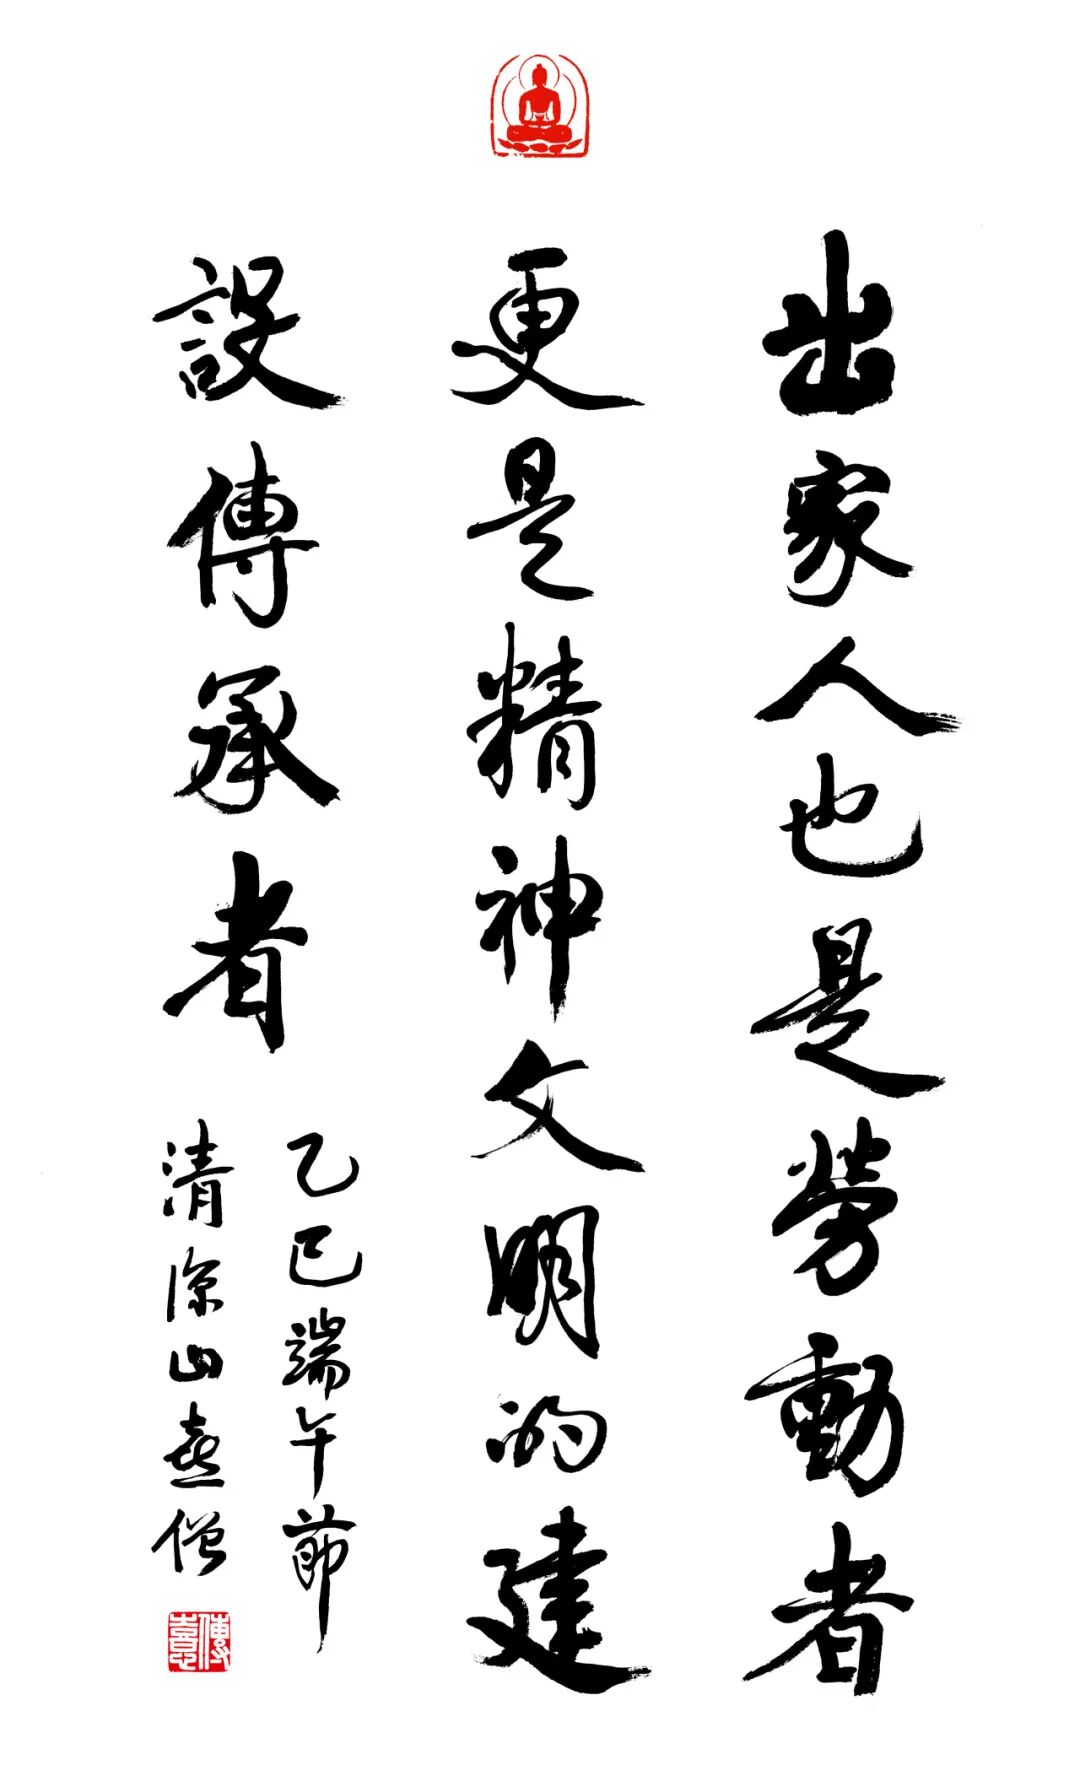 出家人也是勞動者
更是精神文明的建
設傳承者
乙巳端午節
清涼山憙僧
傳憙